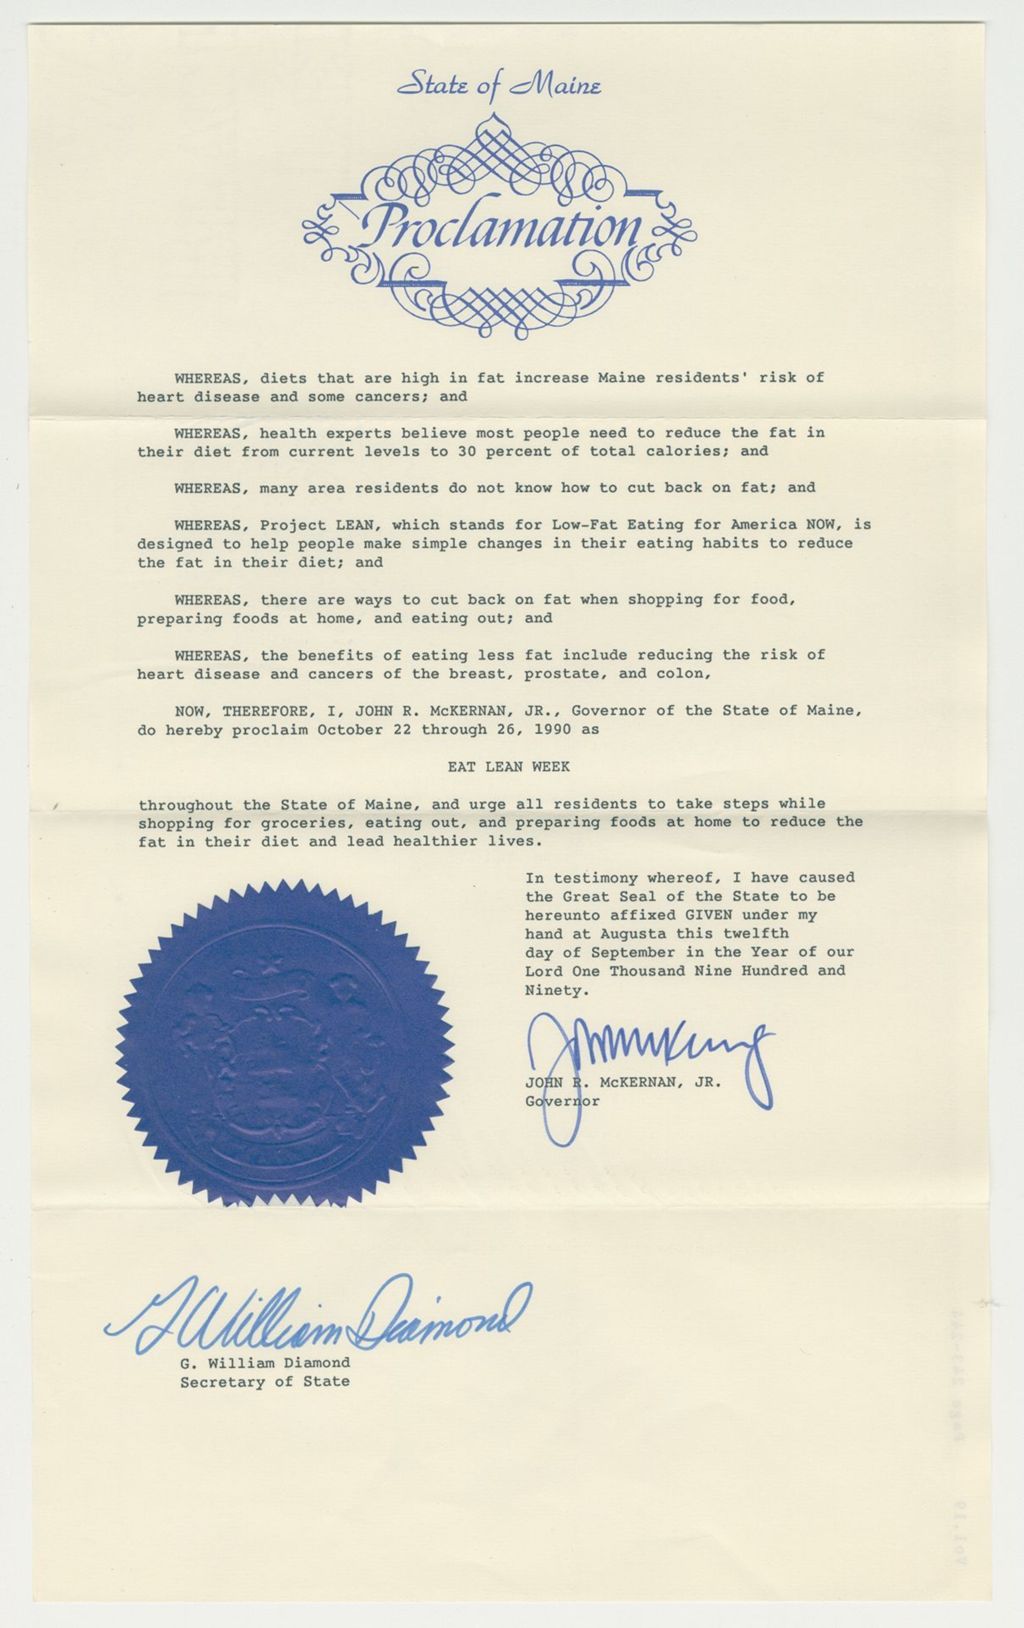 State of Maine
Proclamation
WHEREAS, diets that are high in fat increase Maine residents' risk of
heart disease and some cancers; and
WHEREAS, health experts believe most people need to reduce the fat in
their diet from current levels to 30 percent of total calories; and
WHEREAS, many area residents do not know how to cut back on fat; and
WHEREAS, Project LEAN, which stands for Low-Fat Eating for America NOW, is
designed to help people make simple changes in their eating habits to reduce
the fat in their diet; and
WHEREAS, there are ways to cut back on fat when shopping for food,
preparing foods at home, and eating out; and
WHEREAS, the benefits of eating less fat include reducing the risk of
heart disease and cancers of the breast, prostate, and colon,
NOW, THEREFORE, I, JOHN R. McKERNAN, JR., Governor of the State of Maine,
do hereby proclaim October 22 through 26, 1990 as
EAT LEAN WEEK
throughout the State of Maine, and urge all residents to take steps while
shopping for groceries, eating out, and preparing foods at home to reduce the
fat in their diet and lead healthier lives.
In testimony whereof, I have caused
the Great Seal of the State to be
hereunto affixed GIVEN under my
hand at Augusta this twelfth
day of September in the Year of our
Lord One Thousand Nine Hundred and
Ninety.
JOHN R. McKERNAN, JR.
Governor
G William Diamond
G. William Diamond
Secretary of State